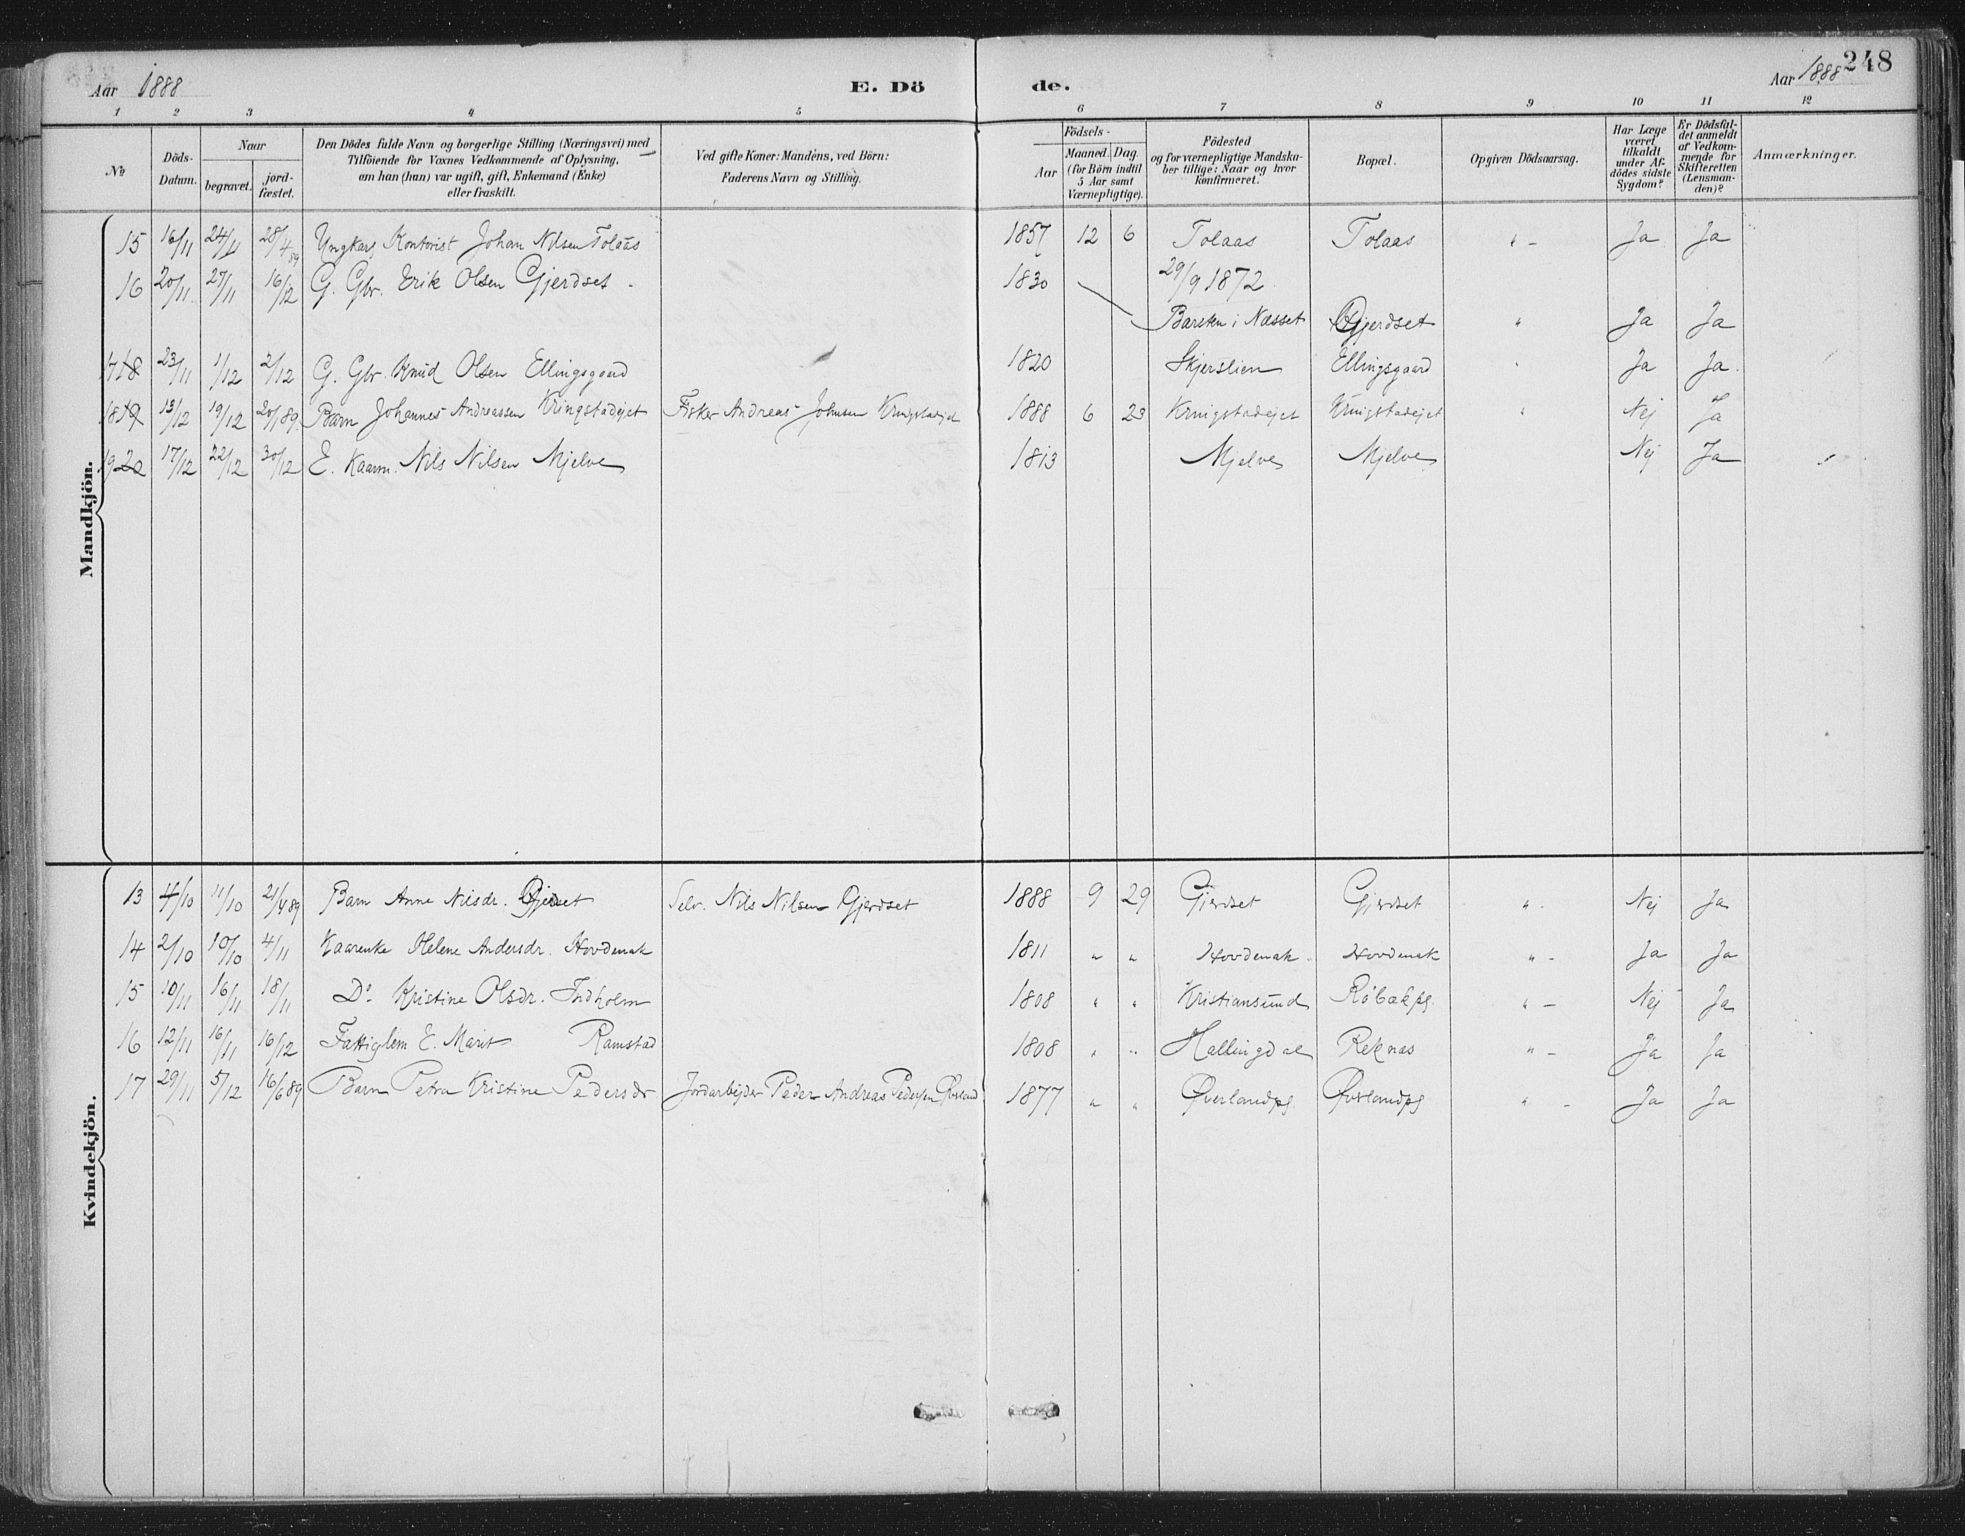 Aar 1888 E. Dö de. Aar 1888 248
1 2 3 4 5 6 7 8 9 10 11 12
No
Döds-Datum.
Naar
begravet.
jord-fæstet.
Den Dödes fulde Navn og borgerlige Stilling (Næringsvei) med
Tilföiende for Voxnes Vedkommende af Oplysning,
om han (hun) var ugift, gift, Enkemand (Enke)
eller fraskilt.
Ved gifte Koner: Mandens, ved Börn:
Faderens Navn og Stilling.
Födsels-
Aar
Maaned. Dag.
(for Börn indtil
5 Aar samt
Værnepligtige).
Födested
og for værnepligtige Mandska-
ber tillige: Naar og hvor
konfirmeret.
Bopæl.
Opgiven Dödsaarsag.
Har Læge
været
tilkaldt
under Af-
dödes sidste
Sygdom?
Er Dödsfal-
det anmeldt
af Vedkom-
mende for
Skifteretten
(Lensman-
den)?
Anmærkninger.
Mandkjön.
15 16/11 24/11 28/4 89 Ungkarl Kontorist Johan Nilsen Tolaas 1857 12 6 Tolaas Tolaas " - Ja Ja
16 20/11 27/11 16/12 G. Gbr. Erik Olsen Gjerdset - 1830 29/9 1872
Barsten i Næsset Gjerdset " Ja Ja
17 18 23/11 1/12 2/12 G. Gbr. Knud Olsen Ellingsgaard 1820 Skjerslien Ellingsgaard " Ja Ja
18 19 13/12 19/12 20/1 89 Barn Johannes Andreassen Kringstadejet Fisker Andreas Johnsen Kringstadejet 1888 6 23 Kringstadejet Kringstadejet " Nej Ja
19 20 17/12 22/12 30/12 E. Kaarm. Nils Nilsen Mjelve 1813 Mjelve Mjelve Nej Ja
Kvindekjön.
13 4/10 11/10 21/4 89 Barn Anne Nilsdr. Gjerdset Selv. Nils Nilsen Gjerdset 1888 9 29 Gjerdset Gjerdset " - Nej Ja
14 2/10 10/10 4/11 Kaarenke Helene Andersdr. Hovdenak 1811 " " Hovdenak Hovdenak " - Ja Ja
15 10/11 16/11 18/11 Do Kristine Olsdr. Indholm 1808 " " Kristiansund Röbækpg. " - Nej Ja
16 12/11 16/11 16/12 Fattiglem E. Marit Ramstad 1808 " " Hallingdal Reknæs " - Ja Ja
17 29/11 5/12 16/6 89 Barn Petra Kristine Pedersdr Jordarbejder Peder Andreas Pedersen Øverland 1877 " " Øverlandpg. Øverlandpg " - Ja Ja